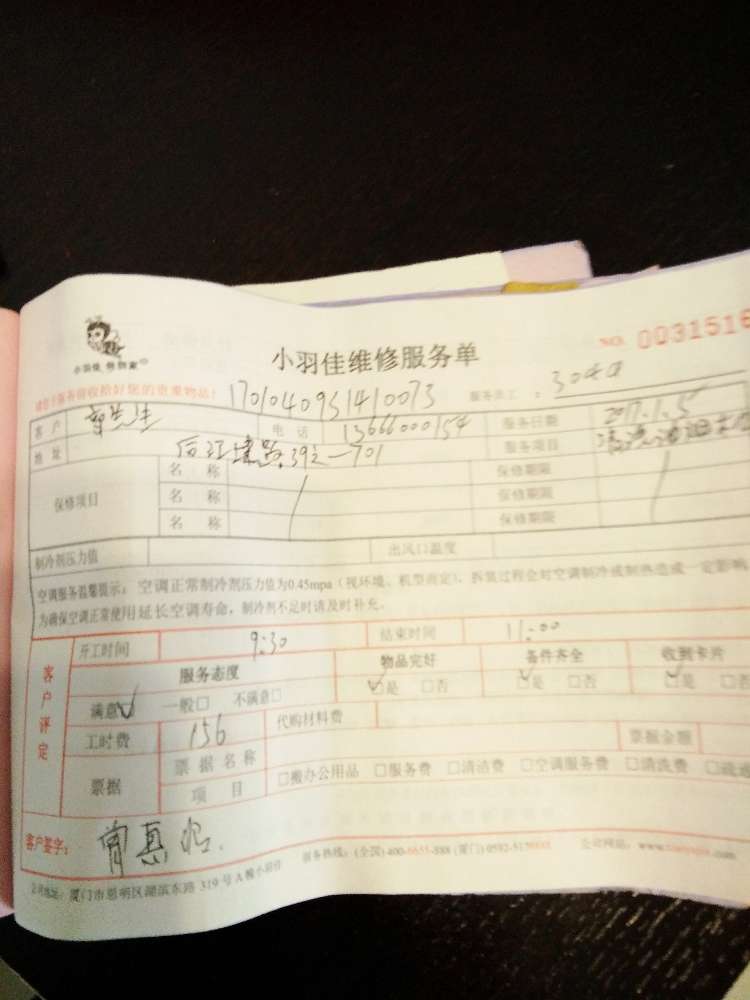 小羽佳维修服务单
NO. 0031516
请您于服务前收拾好您的贵重物品! 1701040951410073 服务员工:
客户 先生 电话 13666000154 服务日期 2017.1.5
地址 后江埭路39之一701 服务项目 清洗油烟
保修项目 名称 保修期限
名称 保修期限
名称 保修期限
制冷剂压力值 出风口温度
空调服务温馨提示:空调正常制冷剂压力值为0.45mpa(视环境、机型而定),拆装过程会对空调制冷或制热造成一定影响,
为确保空调正常使用延长空调寿命,制冷剂不足时请及时补充。
客户评定 开工时间 9:30 结束时间 11:00
服务态度 物品完好 备件齐全 收到卡片
满意□ 一般□ 不满意□ □是 □否 □是 □否 □是 □否
工时费 156 代购材料费
票据 票据名称 票据金额
项目 □搬办公用品 □服务费 □清洁费 □空调服务费 □清洗费 □疏通
客户签字:
公司地址:厦门市思明区湖滨东路319号A幢小羽佳 服务热线:(全国)400-6655-888 (厦门)0592-5 公司网站: